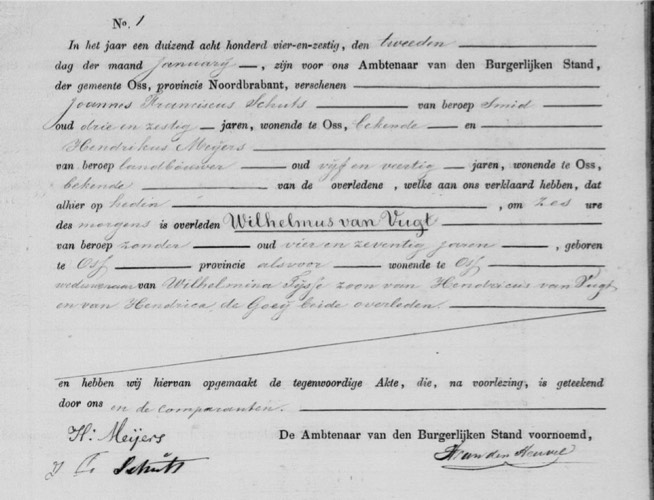 No. 1
In het jaar een duizend acht honderd vier-en-zestig, den tweeden
dag der maand January, zijn voor ons Ambtenaar van den Burgerlijken Stand,
der gemeente Oss, provincie Noordbrabant, verschenen
Joannes Franciscus Schuts van beroep Smid
oud drie en zestig jaren, wonende te Oss, bekende en
Hendrikus Meijers
van beroep landbouwer oud vijf en veertig jaren, wonende te Oss,
bekende van de overledene, welke aan ons verklaard hebben, dat
alhier op heden, om zes ure
des morgens is overleden Wilhelmus van Vugt
van beroep zonder oud vier en zeventig jaren, geboren
te Oss provincie alsvoor wonende te Oss
weduwenaar van Wilhelmina zoon van Hendricus van Vugt
en van Hendrica de Goeij beide overleden.
en hebben wij hiervan opgemaakt de tegenwoordige Akte, die, na voorlezing, is geteekend
door ons en de comparanten.
H: Meijers De Ambtenaar van den Burgerlijken Stand voornoemd,
Schuts van den Heuvel